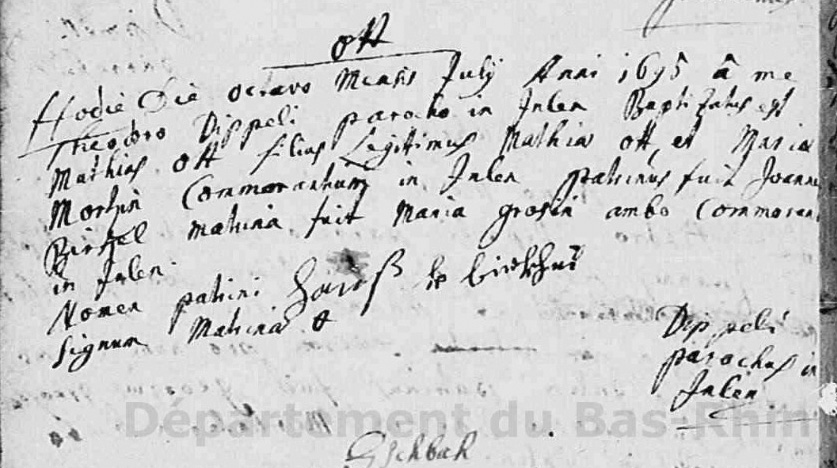 ott
Hodie Die octavo Mensis July Anni 1695 â me
Theodoro Dippeli parocho in Inlen Baptizatus est
Mathias ott filius Legittimus Mathiæ ott, et Maria
Mortzin Commorantium in Inlen patrinus fuit Joannes
matrina fuit Maria grosin ambo Commorant
in Inlen.
Nomen patrini
signum Matrinæ
Dippeli
parochus in
Inlen
Département du Bas-Rhin
Eschbah